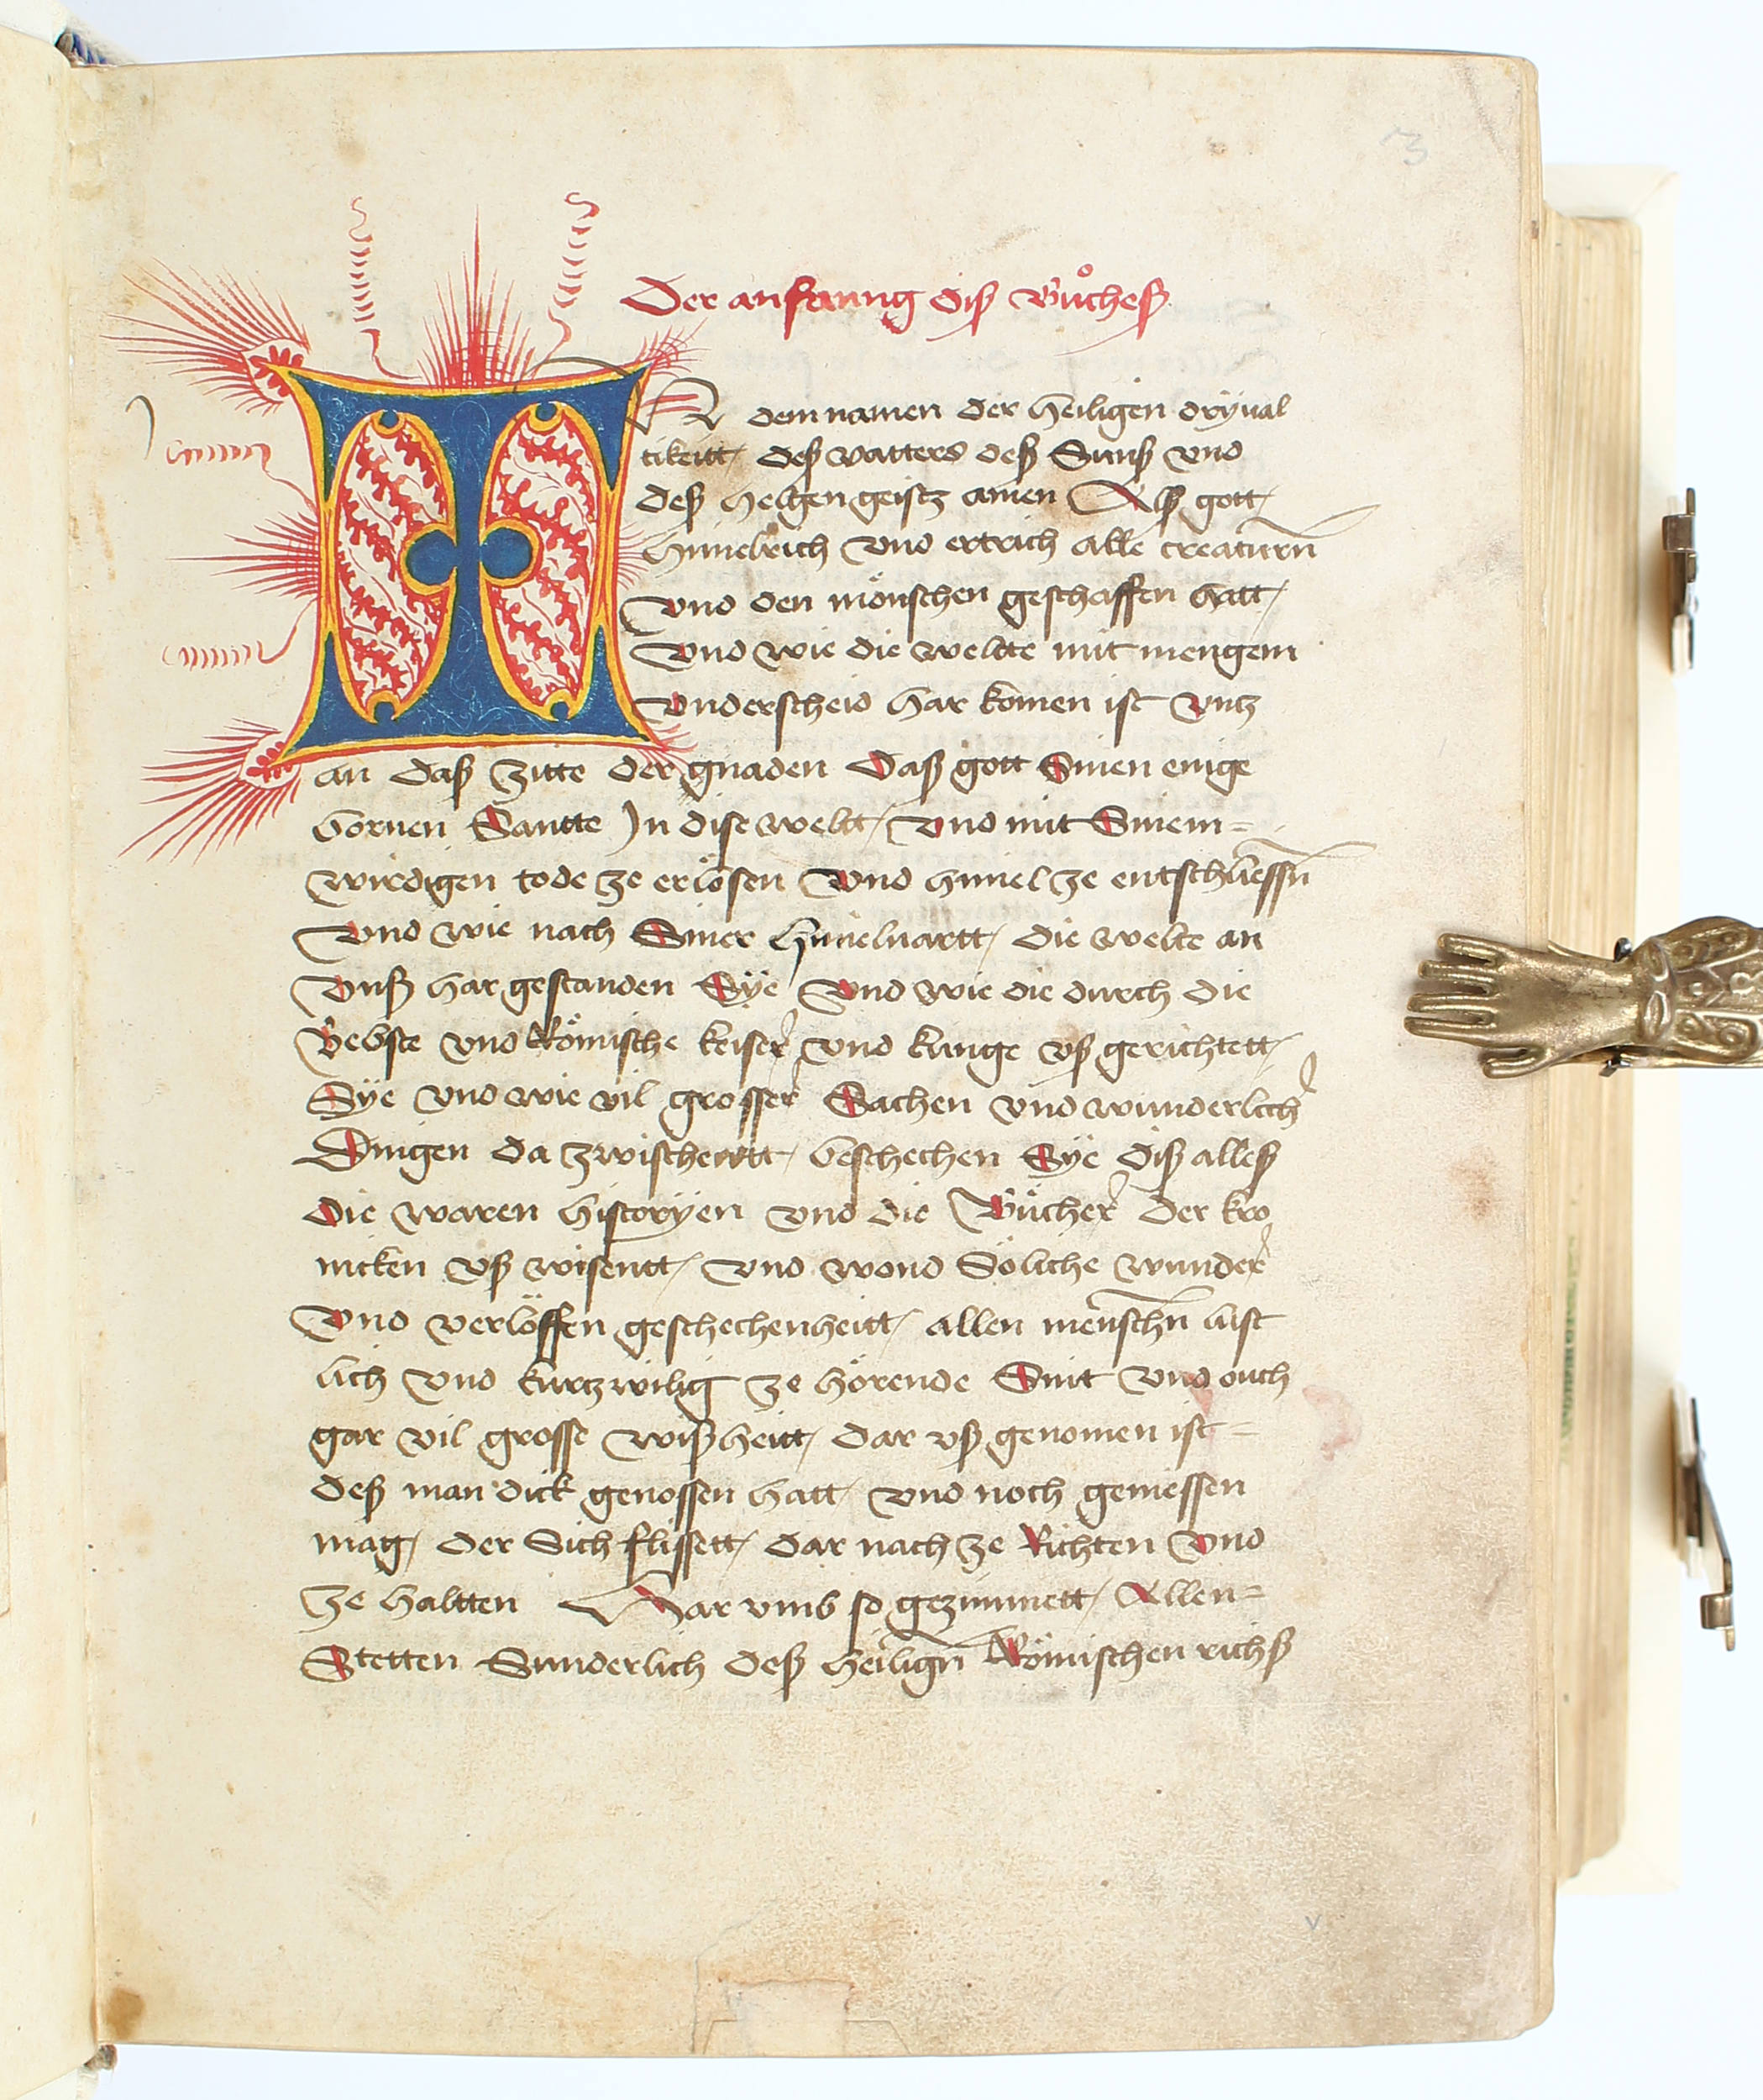 3
Der anfanng diß Bůcheß
IN dem namen der heiligen drÿual
tikeitt / deß vatters deß Sunß vnd
deß helgen geistz amen Alß gott /
himelrich vnd ertrich alle creaturn̄
vnd den mönschen geschaffen hatt /
Vnd wie die weltte mit mengem
vnderscheid har komen ist vntz
an daß zitte der gnaden Daß gott Sinen einige
bornen Santte In dise weltt / vnd mit Sinem =
wirdigen tode ze erlösen Vnd himel ze entschliessn̄
Vnd wie nach Siner himeluartt / die welte an
Vnß har gestanden Sÿe / Vnd wie die durch die
Bebste vnd Römische keiser vnd kunge vß gerichtett /
Sÿe vnd wie vil grosser Sachen vnd wunderlich
Dingen da zwischentt / beschechen Sÿe diß alleß
die waren historÿen vnd die Bücher der kro
nicken vß wisentt / vnd wond Söliche wunder
Vnd verlöffen geschechenheitt / allen menschn̄ lust
lich vnd kurtzwilig ze hörende Sint vnd ouch
gar vil grosse wißheitt / dar vß genomen ist =
deß man dick genossen hatt / vnd noch geniessen
mag / der Sich flissett / dar nach ze Richten vnd
ze haltten Har vmb so gezimmett / Allen =
Stetten Sunderlich deß heilign̄ Römischen richß